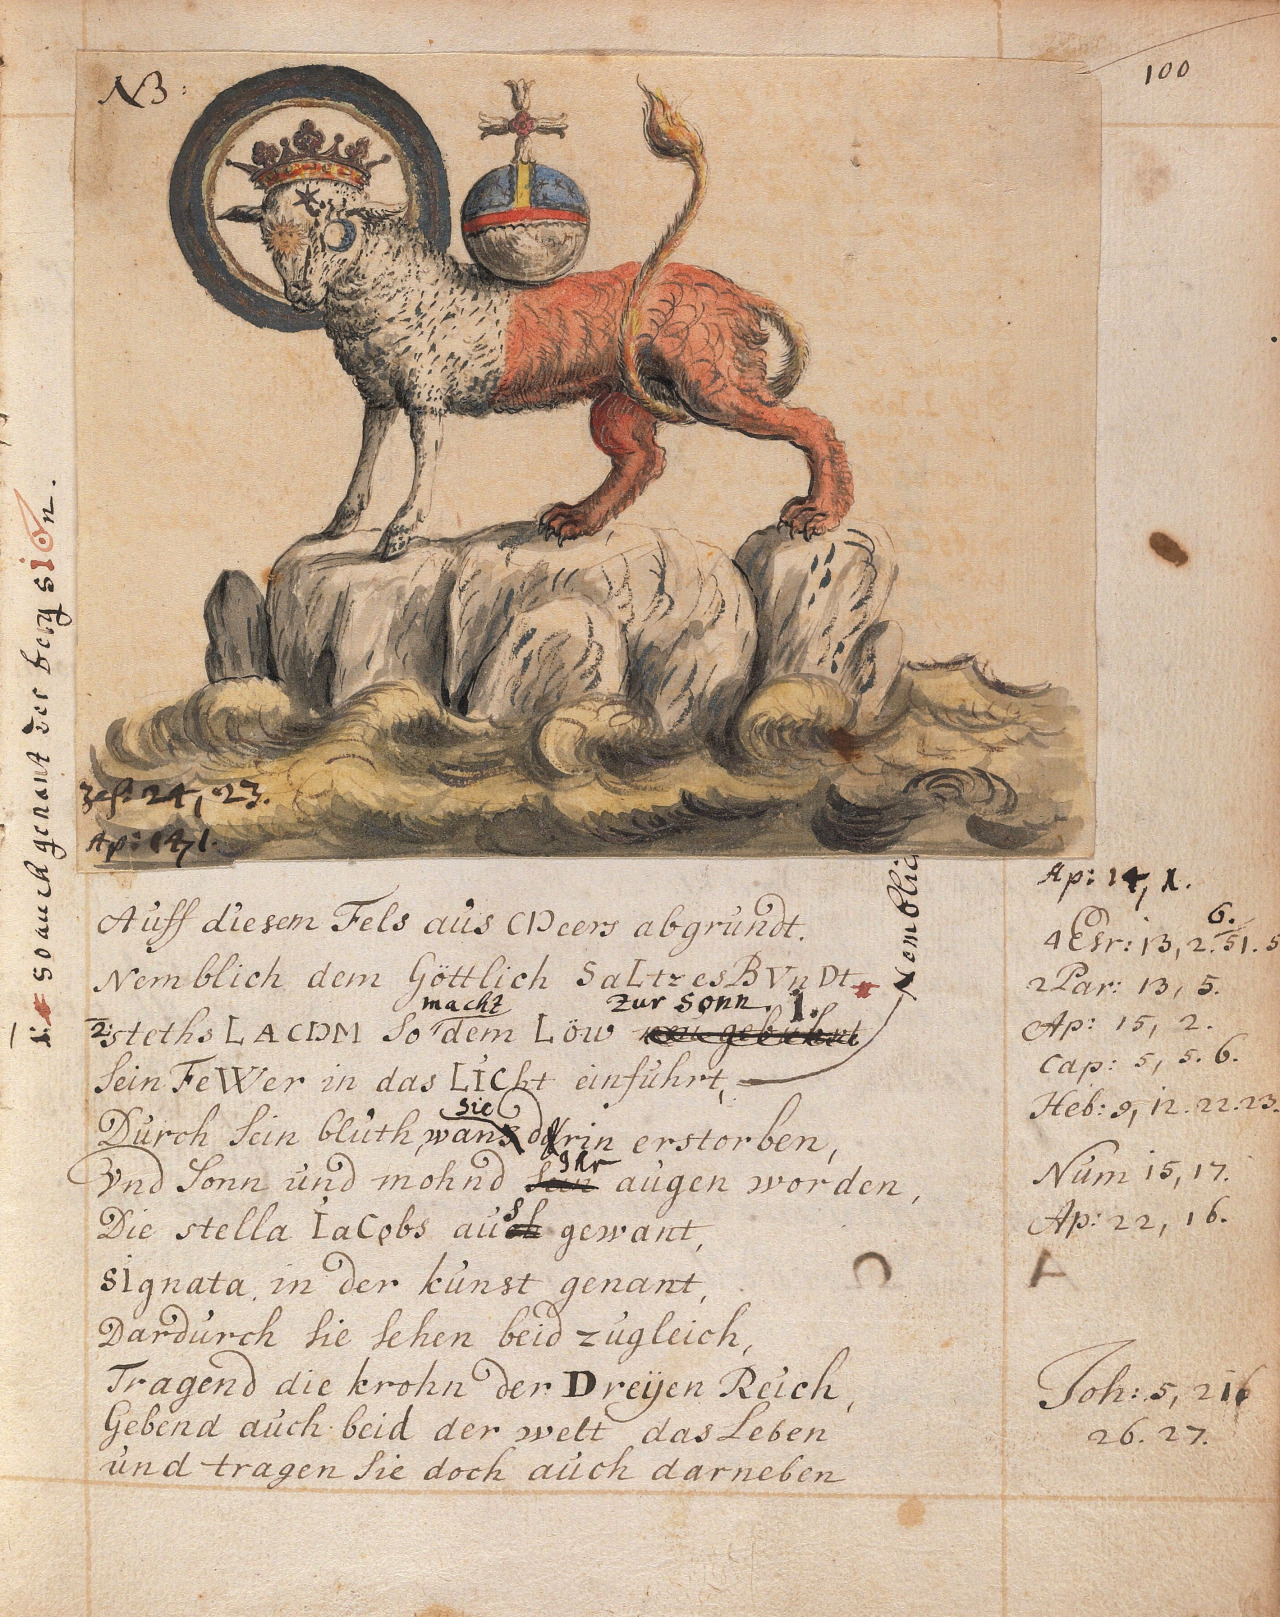 NB:
100
Jes: 24, 23.
Ap: 14, 1.
so auch genant der berg sion.
Nemblich
Auff diesem Fels aus Meers abgrundt.
Nemblich dem Göttlich SaLtzesBVnDt
macht zur Sonn. 1.
2. steths LAMM So dem Löw neu gebührt
Sein FeWer in das LICht einführt,
sie
Durch Sein bluth, wans darin erstorben,
Ihr
Vnd Sonn und mohnd Sein augen worden,
s
Die stella IaCobs auch gewant,
signata in der kunst genant,
Dardurch Sie Sehen beid zugleich,
Tragend die krohn der Dreyen Reich,
Gebend auch beid der welt das Leben
und tragen Sie doch auch darneben
Ap: 14, 1.
6.
4 Esr: 13, 2. 51. 5
2 Par: 13, 5.
Ap: 15, 2.
Cap: 5, 5. 6.
Heb: 9, 12. 22. 23.
Num 15, 17.
Ap: 22, 16.
Joh: 5, 21
26. 27.